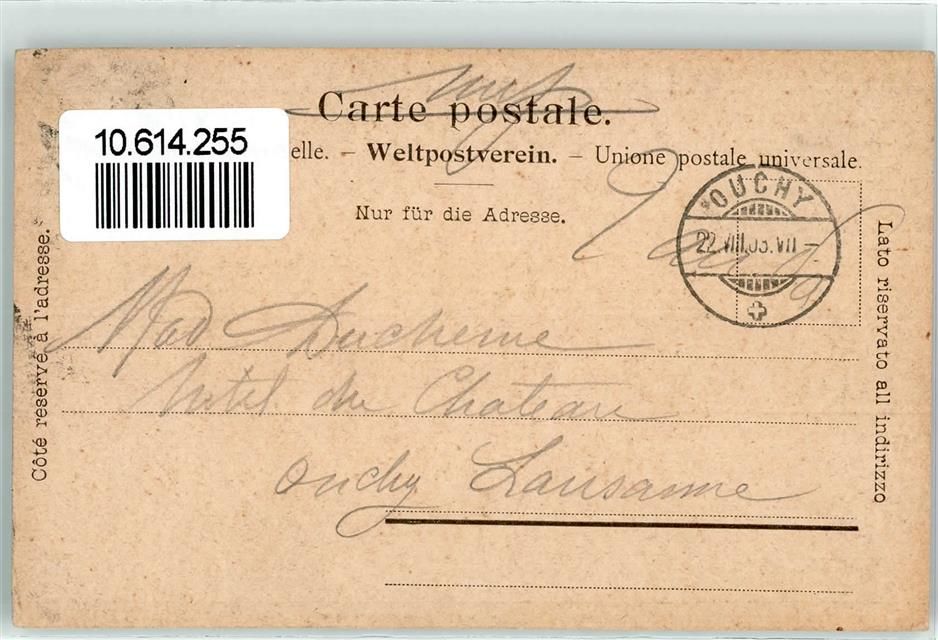 Carte postale.
10.614.255
elle. – Weltpostverein. – Unione postale universale.
Nur für die Adresse.
OUCHY
22.VIII.03.VII –
Côté reservé à l'adresse.
Lato riservato all indirizzo
Mad Ducheme
Hotel du Chateau
Ouchy Lausanne